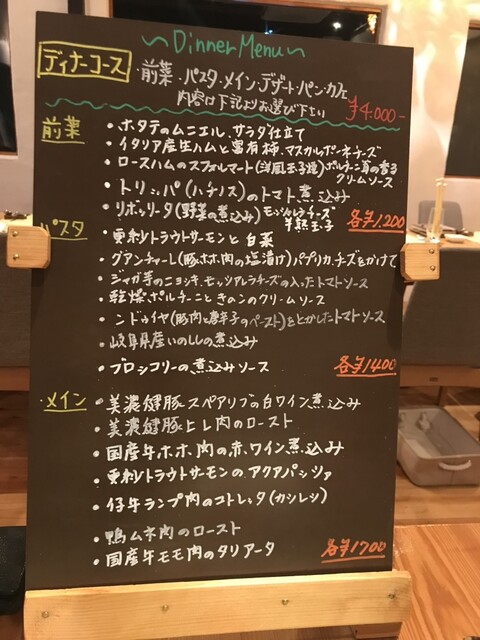 ~Dinner Menu~
ディナーコース ・前菜・パスタ・メイン・デザート・パン・カフェ
内容は下記よりお選び下さい ¥4.000-
前菜 ・ホタテのムニエル、サラダ仕立て
・イタリア産生ハムと富有柿、マスカルポーネチーズ
・ロースハムのスフォルマート(洋風玉子焼)ポルチーニ茸の香る
クリームソース
・トリッパ(ハチノス)のトマト煮込み
・リボッリータ(野菜の煮込み)モッツァレラチーズ
半熟玉子 各¥1.200
パスタ ・更紗トラウトサーモンと白菜
・グアンチャーレ(豚ホホ肉の塩漬け)パプリカ、チーズをかけて
・ジャガ芋のニョッキ、モッツァレラチーズの入ったトマトソース
・乾燥ポルチーニときのこのクリームソース
・ンドゥイヤ(豚肉と唐辛子のペースト)をとかしたトマトソース
・岐阜県産いのししの煮込み
・ブロッコリーの煮込みソース 各¥1400
・メイン ・美濃健豚スペアリブの白ワイン煮込み
・美濃健豚ヒレ肉のロースト
・国産牛ホホ肉の赤ワイン煮込み
・更紗トラウトサーモンのアクアパッツァ
・仔牛ランプ肉のコトレッタ(カツレツ)
・鴨ムネ肉のロースト
・国産牛モモ肉のタリアータ 各¥1700